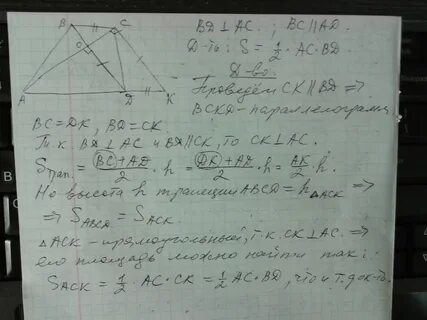 B
C
O
A
D
K
BD ⊥ AC. ; BC ∥ AD.
Д-ть: S = 1/2 · AC · BD
Д-во.
Проведём CK ∥ BD ⇒
BCKD - параллелограмм
BC = DK, BD = CK.
Т.к. BD ⊥ AC и BD ∥ CK, то CK ⊥ AC.
Sтрап. = (BC + AD)/2 · h = (DK + AD)/2 · h = AK/2 · h.
Но высота h трапеции ABCD = h△ACK ⇒
⇒ SABCD = SACK.
△ACK - прямоугольный, т.к. CK ⊥ AC ⇒
его площадь можно найти так:
SACK = 1/2 · AC · CK = 1/2 AC · BD, что и т. док-ть.